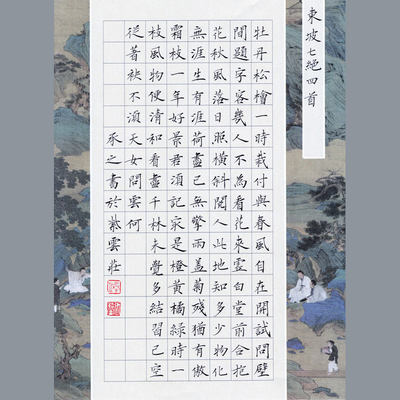 東坡七絕四首
牡丹松檜一時栽付與春風自在開試問壁
間題字客幾人不為看花來虛白堂前合抱
花秋風落日照橫斜閱人此地知多少物化
無涯生有涯荷盡已無擎雨蓋菊殘猶有傲
霜枝一年好景君須記㝡是橙黃橘綠時一
枝風物便清和看盡千林未覺多結習已空
從著袂不須天女問雲何
承之書於紫雲莊